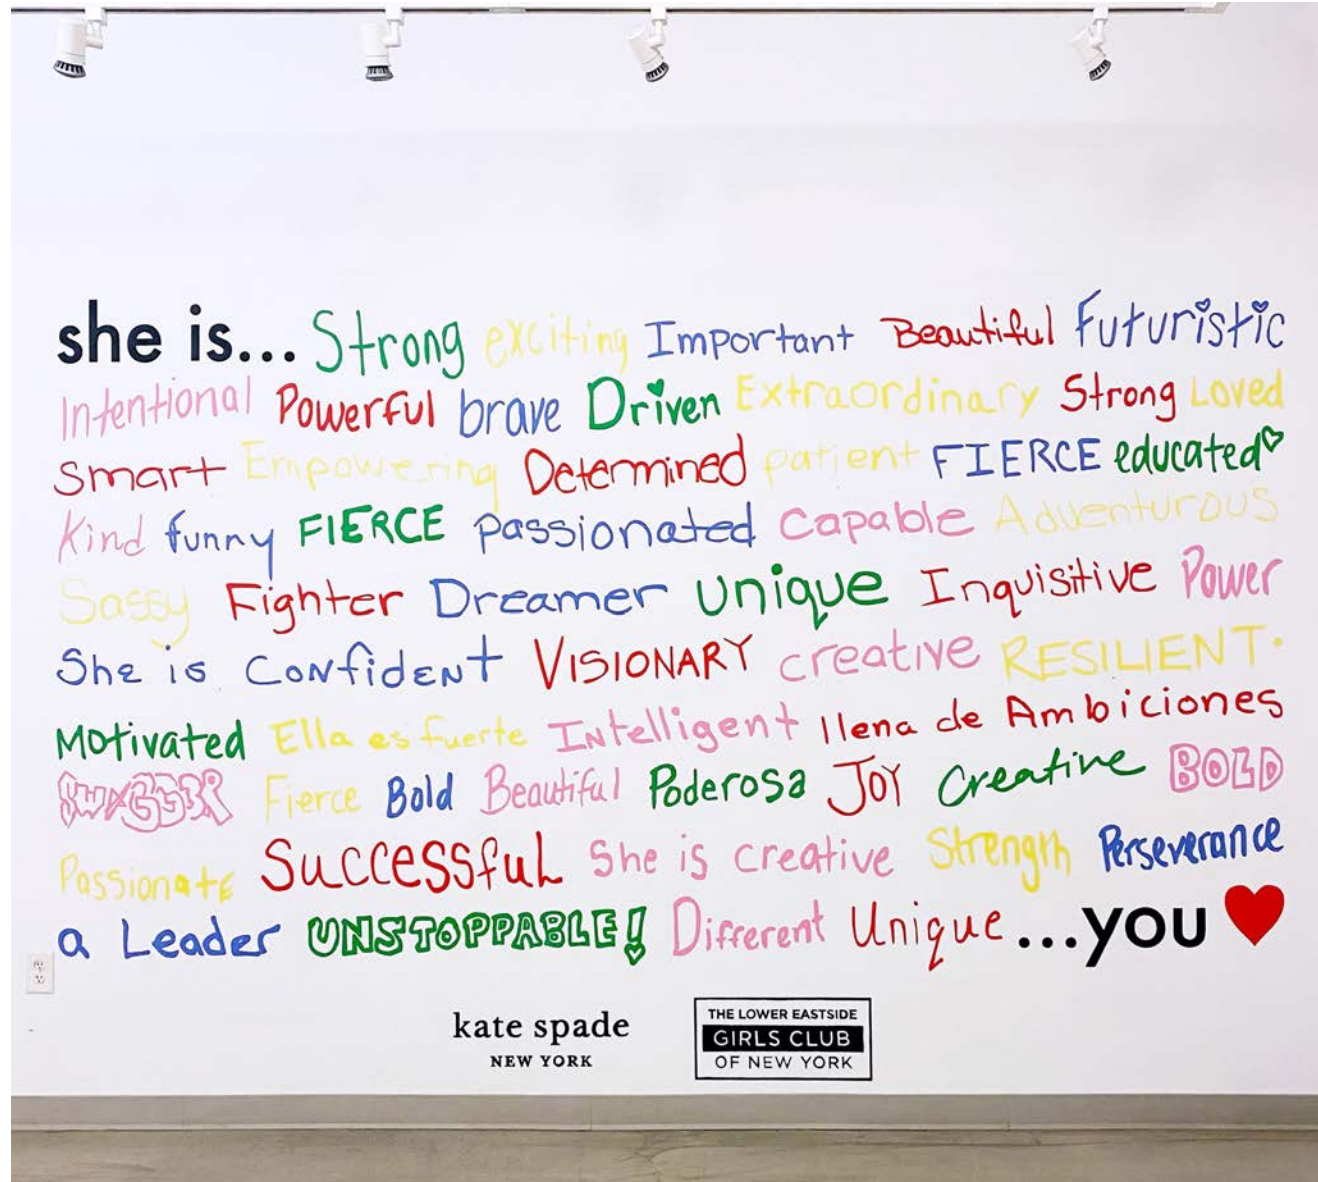 she is... Strong exciting Important Beautiful Futuristic
Intentional Powerful brave Driven Extraordinary Strong Loved
Smart Empowering Determined patient FIERCE educated
Kind funny FIERCE passionated capable Adventurous
Sassy Fighter Dreamer unique Inquisitive Power
She is CoNfideNt VISIONARY creative RESILIENT.
Motivated Ella es fuerte INtelligent llena de Ambiciones
Fierce Bold Beautiful Poderosa JOY Creative BOLD
Passionate Successful She is creative Strength Perseverance
a Leader UNSTOPPABLE! Different Unique ...you
kate spade
NEW YORK
THE LOWER EASTSIDE
GIRLS CLUB
OF NEW YORK